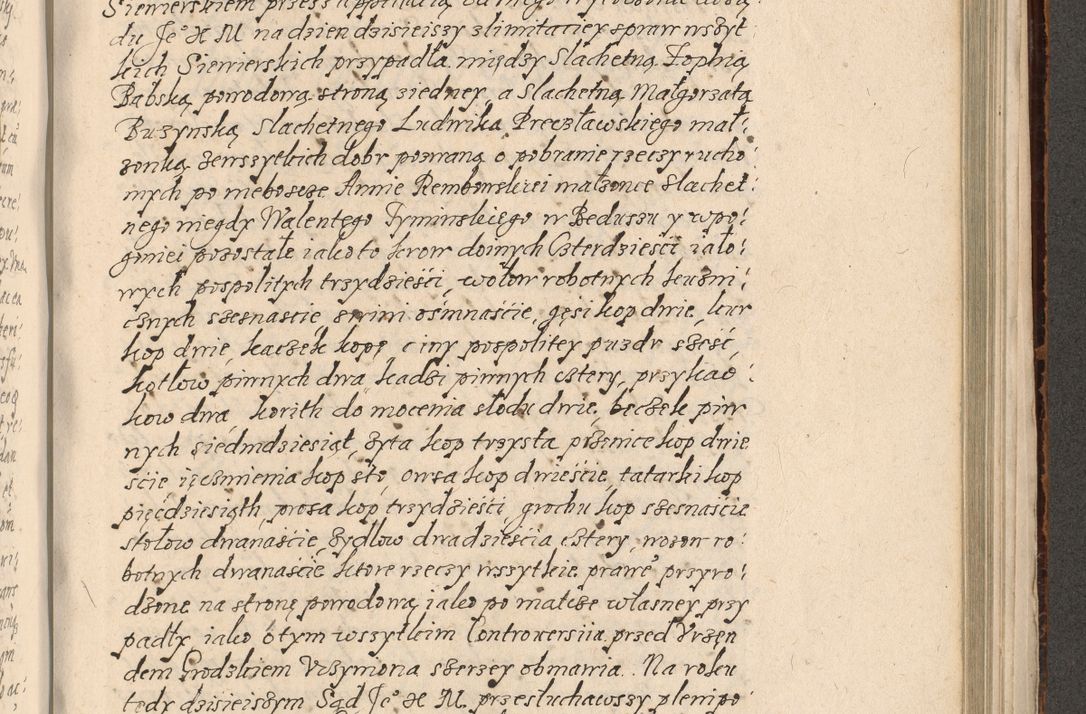 du Je° X M na dzien dzisieiszy zlimitaciey spraw wszyt
kich Siewierskich przypadła, między Slachetną Zophią
Bąbską powodową stroną ziedney, a Slachetną Małgorzatą
Buzynską Slachetnego Ludwika Preczławskiego mał:
zonką zewszytkich dobr pozwaną o pobranie rzeczy rucho:
mych po nieboszcze Annie Rembowskiei małzonce Slachet:
nego niegdy Walentego Tyminskiego w Beduszu y wpo:
goniei pozostałe iako to krow doinych Czterdziesci iało:
wych pospolitych trzydzieści, wołow robotnych kuzni:
cznych szesnascie swini ośmnaście, gęsi kop dwie, kur
kop dwie, kaczek kopę ciny pospolitey puzdr sześć,
kotłow piwnych dwa, kadzi piwnych cztery, przykad:
kow dwa, korith do mocenia słodu dwie, beczek piw
nych siedmdziesiąt, zyta kop trzysta pszenice kop dwie
ście ięczmienia kop sto, owsa kop dwieście, tatarki kop
pięćdziesiąth, prosa kop trzydzieści, grochu kop szesnaście
stołow dwanaście, zydlow dwadzieścia cztery, wozow ro:
botnych dwanaście ktore rzeczy wszytkie prawe przyro:
dzone na stronę powodową iako po matcze własney przy
padły iako o tym wszytkim Controwersiia przed Vrzęn
dem Grodzkiem Vczyniona szerzey obmawia. Na roku
tedy dzisieiszym Sąd Je° X M przesłuchawszy plenipo: